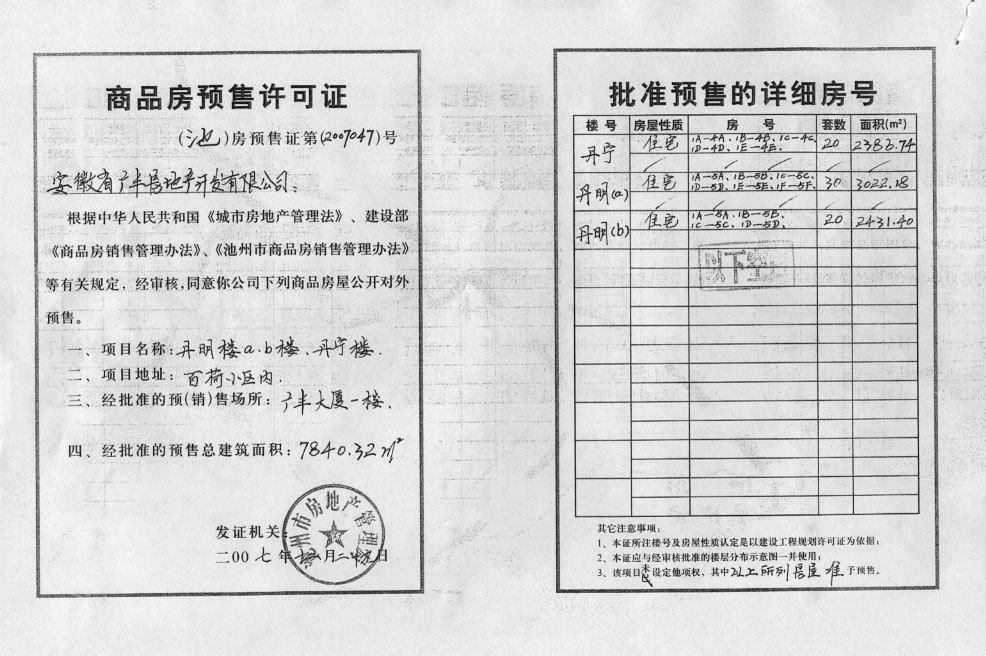 商品房预售许可证
(池)房预售证第(2007047)号
安徽省广丰房地产开发有限公司:
根据中华人民共和国《城市房地产管理法》、建设部
《商品房销售管理办法》、《池州市商品房销售管理办法》
等有关规定，经审核,同意你公司下列商品房屋公开对外
预售。
一、项目名称:丹明楼a.b楼、丹宁楼.
二、项目地址: 百荷小区内.
三、经批准的预(销)售场所: 广丰大厦一楼.
四、经批准的预售总建筑面积: 7840.32㎡
发证机关:
池州市房地产管理
二00七年十二月二十九日
批准预售的详细房号
楼号 房屋性质 房号 套数 面积(m²)
丹宁 住宅 1A-4A、1B-4B、1C-4C、 20 2386.74
1D-4D、1E-4E.
丹明(a) 住宅 1A-5A、1B-5B、1C-5C、 30 3022.18
1D-5D、1E-5E、1F-5F.
丹明(b) 住宅 1A-5A、1B-5B、 20 2431.40
1C-5C、1D-5D.
以下空白
其它注意事项:
1、本证所注楼号及房屋性质认定是以建设工程规划许可证为依据;
2、本证应与经审核批准的楼层分布示意图一并使用;
3、该项目未设定他项权，其中以上所列房屋准予预售。